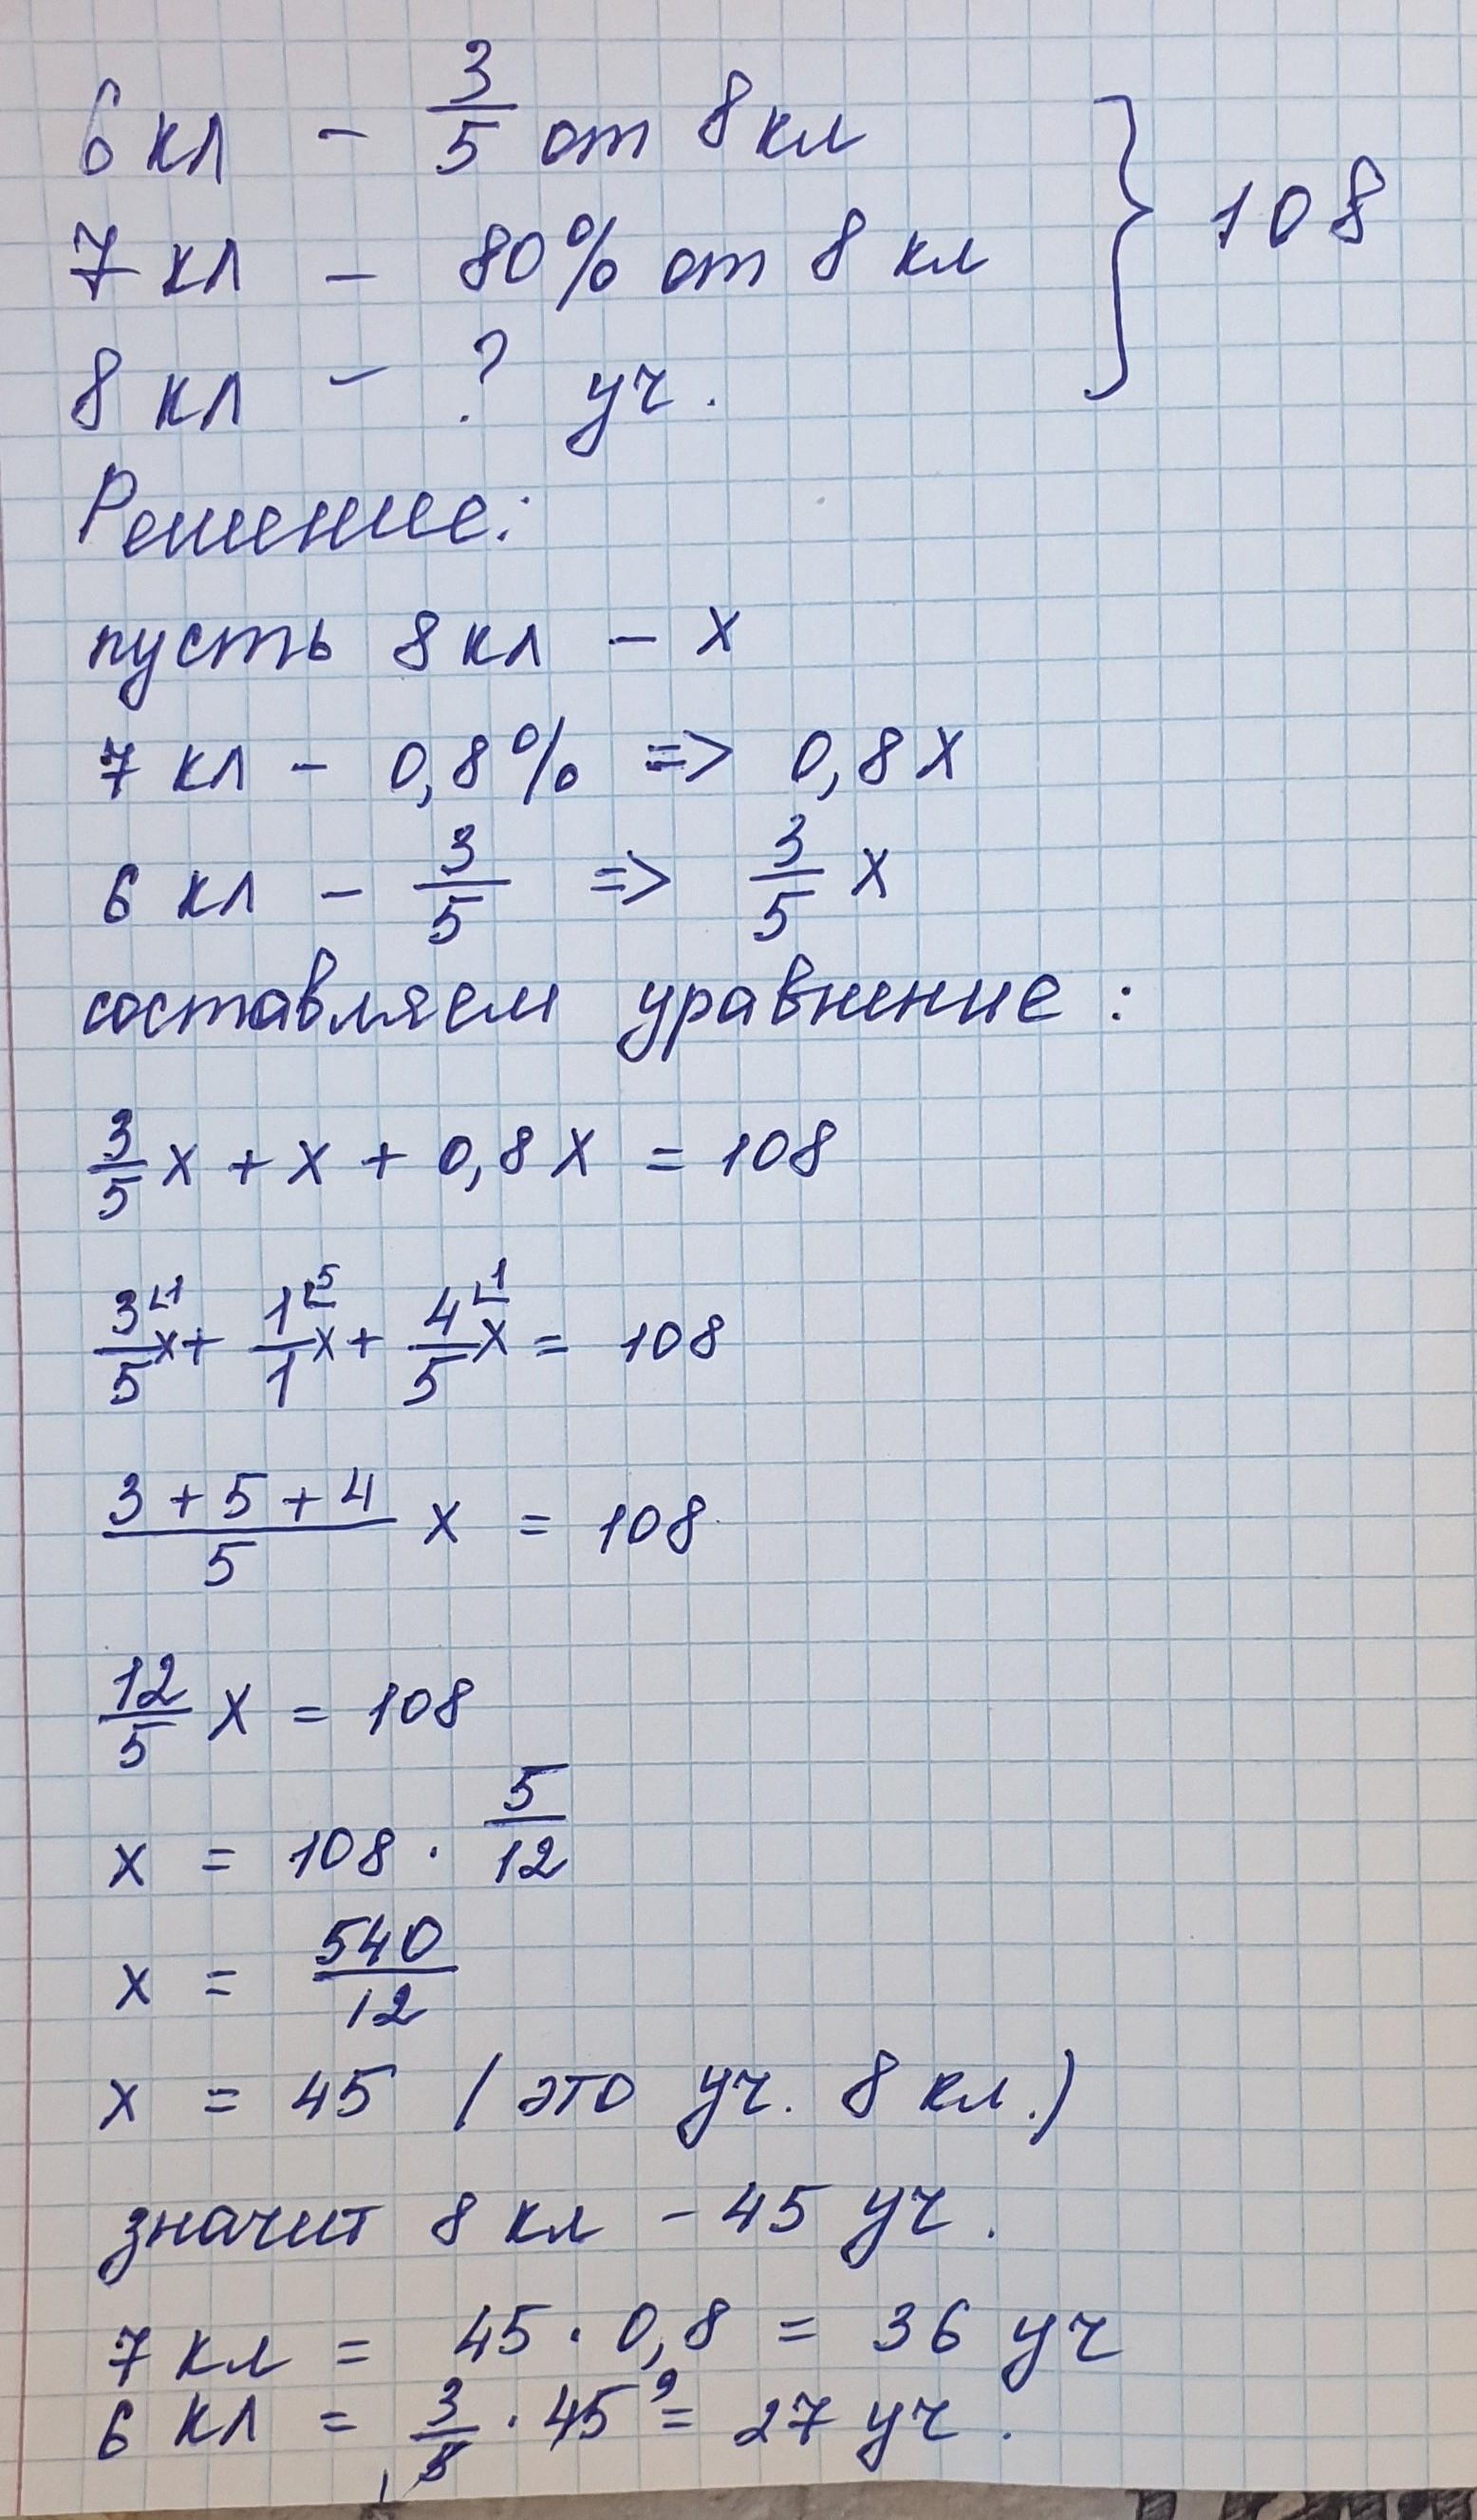 6 кл - 3/5 от 8 кл
7 кл - 80% от 8 кл } 108
8 кл - ? уч.
Решение:
пусть 8 кл - x
7 кл - 0,8% => 0,8x
6 кл - 3/5 => 3/5 x
составляем уравнение:
3/5 x + x + 0,8x = 108
3∟1/5 x + 1∟5/1 x + 4∟1/5 x = 108
3+5+4/5 x = 108
12/5 x = 108
x = 108 · 5/12
x = 540/12
x = 45 (это уч. 8 кл.)
значит 8 кл - 45 уч.
7 кл = 45 · 0,8 = 36 уч
6 кл = 3/5 1 · 45 9 = 27 уч.